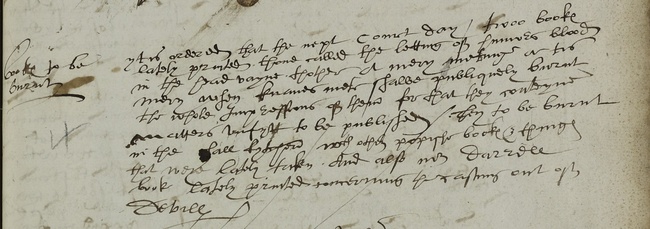 books to be
burnt
yt is ordered that the next Court day / twoo bookes
lately printed thone called the letting of humors blood
in the head vayne thother A mery metinge or tis
mery when knaves mete shalbe publiquely burnt
the whole Impressions of them for that they conteyne
matters vnfytt to be published / They to be burnt
in the hall kytchen with other popishe bookes & thinges
that were lately taken. And also mr Darrells
book lately printed concerning the casting out of
Devills